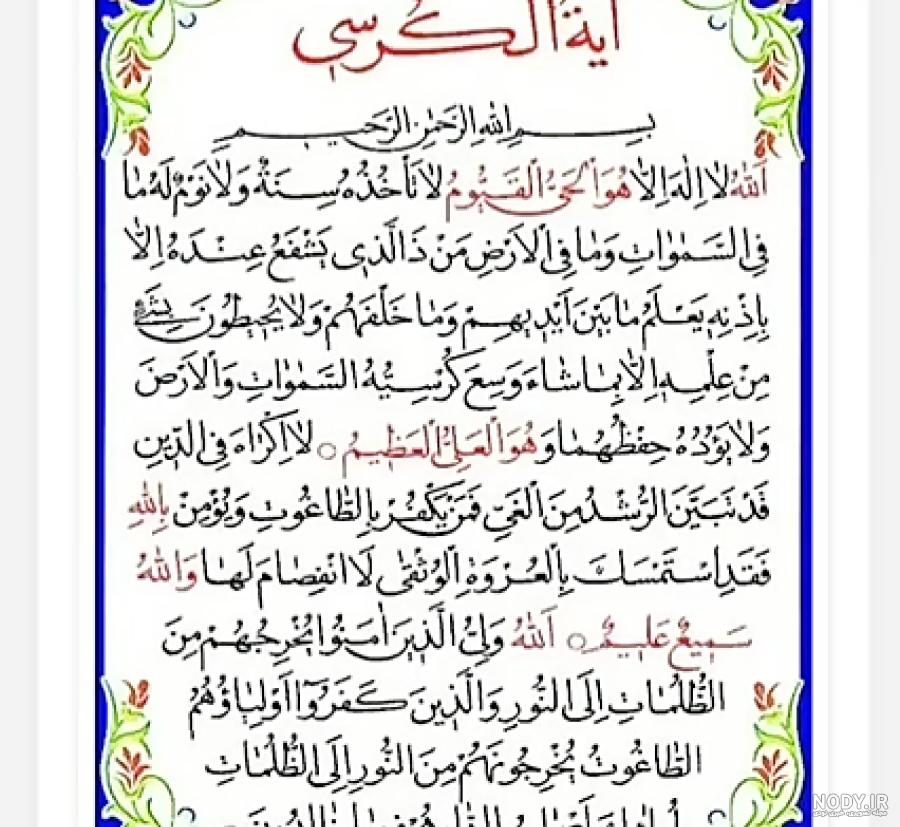 آیة الکرسی
بسم الله الرحمن الرحیم
اَللّٰهُ لَا اِلٰهَ اِلَّا هُوَ الْحَیُّ الْقَیُّومُ لَا تَأْخُذُهُ سِنَةٌ وَلَا نَوْمٌ لَهُ مَا
فِی السَّمٰوَاتِ وَمَا فِی الْاَرْضِ مَنْ ذَا الَّذِی یَشْفَعُ عِنْدَهُ اِلَّا
بِاِذْنِهِ یَعْلَمُ مَا بَیْنَ اَیْدِیهِمْ وَمَا خَلْفَهُمْ وَلَا یُحِیطُونَ بِشَیْءٍ
مِنْ عِلْمِهِ اِلَّا بِمَا شَاءَ وَسِعَ کُرْسِیُّهُ السَّمٰوَاتِ وَالْاَرْضَ
وَلَا یَؤُدُهُ حِفْظُهُمَا وَهُوَ الْعَلِیُّ الْعَظِیمُ ○ لَا اِکْرَاهَ فِی الدِّینِ
قَدْ تَبَیَّنَ الرُّشْدُ مِنَ الْغَیِّ فَمَنْ یَکْفُرْ بِالطَّاغُوتِ وَیُؤْمِنْ بِاللّٰهِ
فَقَدِ اسْتَمْسَكَ بِالْعُرْوَةِ الْوُثْقٰی لَا انْفِصَامَ لَهَا وَاللّٰهُ
سَمِیعٌ عَلِیمٌ ○ اَللّٰهُ وَلِیُّ الَّذِینَ اٰمَنُوا یُخْرِجُهُمْ مِنَ
الظُّلُمَاتِ اِلَی النُّورِ وَالَّذِینَ کَفَرُوا اَوْلِیَاؤُهُمُ
الطَّاغُوتُ یُخْرِجُونَهُمْ مِنَ النُّورِ اِلَی الظُّلُمَاتِ
NODY.IR